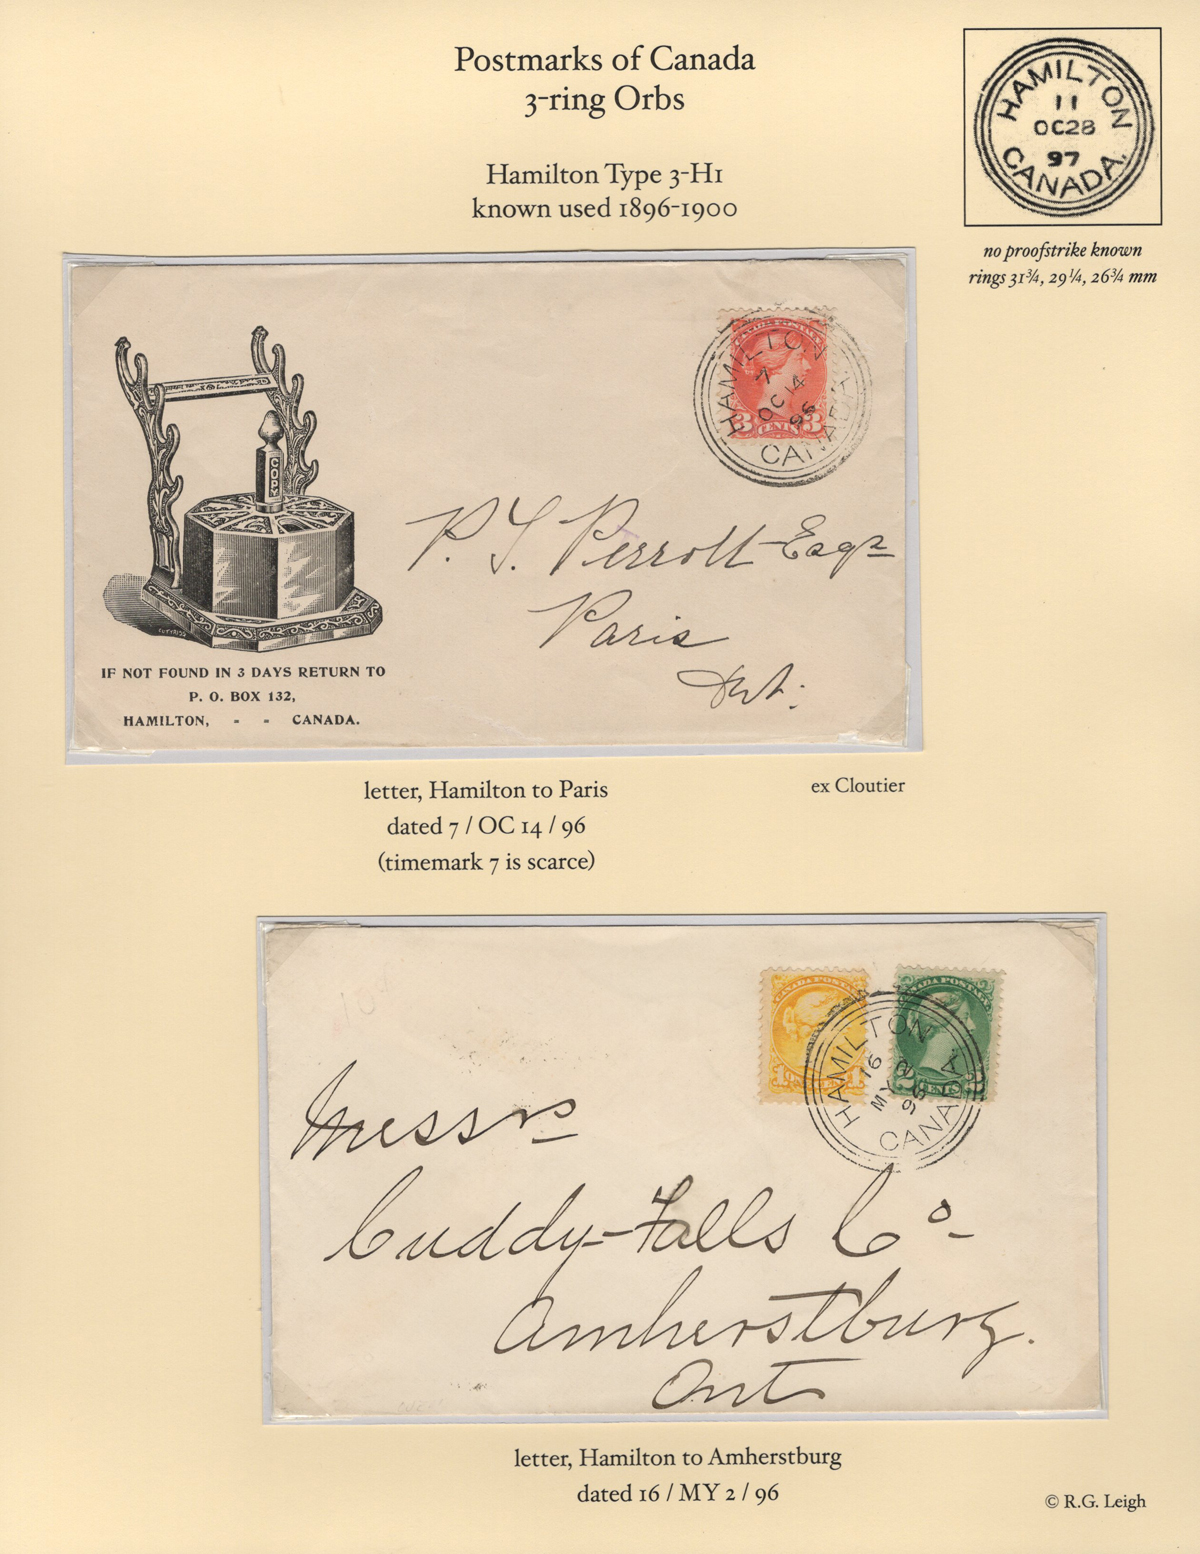 Postmarks of Canada
3-ring Orbs
Hamilton Type 3-H1
known used 1896-1900
HAMILTON
11
OC28
97
CANADA.
no proofstrike known
rings 31¾, 29¼, 26¾ mm
CANADA POSTAGE
3 CENTS 3
HAMILTON
7
OC 14
96
CANADA.
COPY
P. S. Perrott Esqr
Paris
Ont:
IF NOT FOUND IN 3 DAYS RETURN TO
P. O. BOX 132,
HAMILTON, - - CANADA.
letter, Hamilton to Paris
ex Cloutier
dated 7 / OC 14 / 96
(timemark 7 is scarce)
CANADA POSTAGE
CANADA POSTAGE
2 CENTS
HAMILTON
16
MY 2
96
CANADA
Messrs
Cuddy-Falls Co-
Amherstburg.
Ont
letter, Hamilton to Amherstburg
dated 16 / MY 2 / 96
© R.G. Leigh